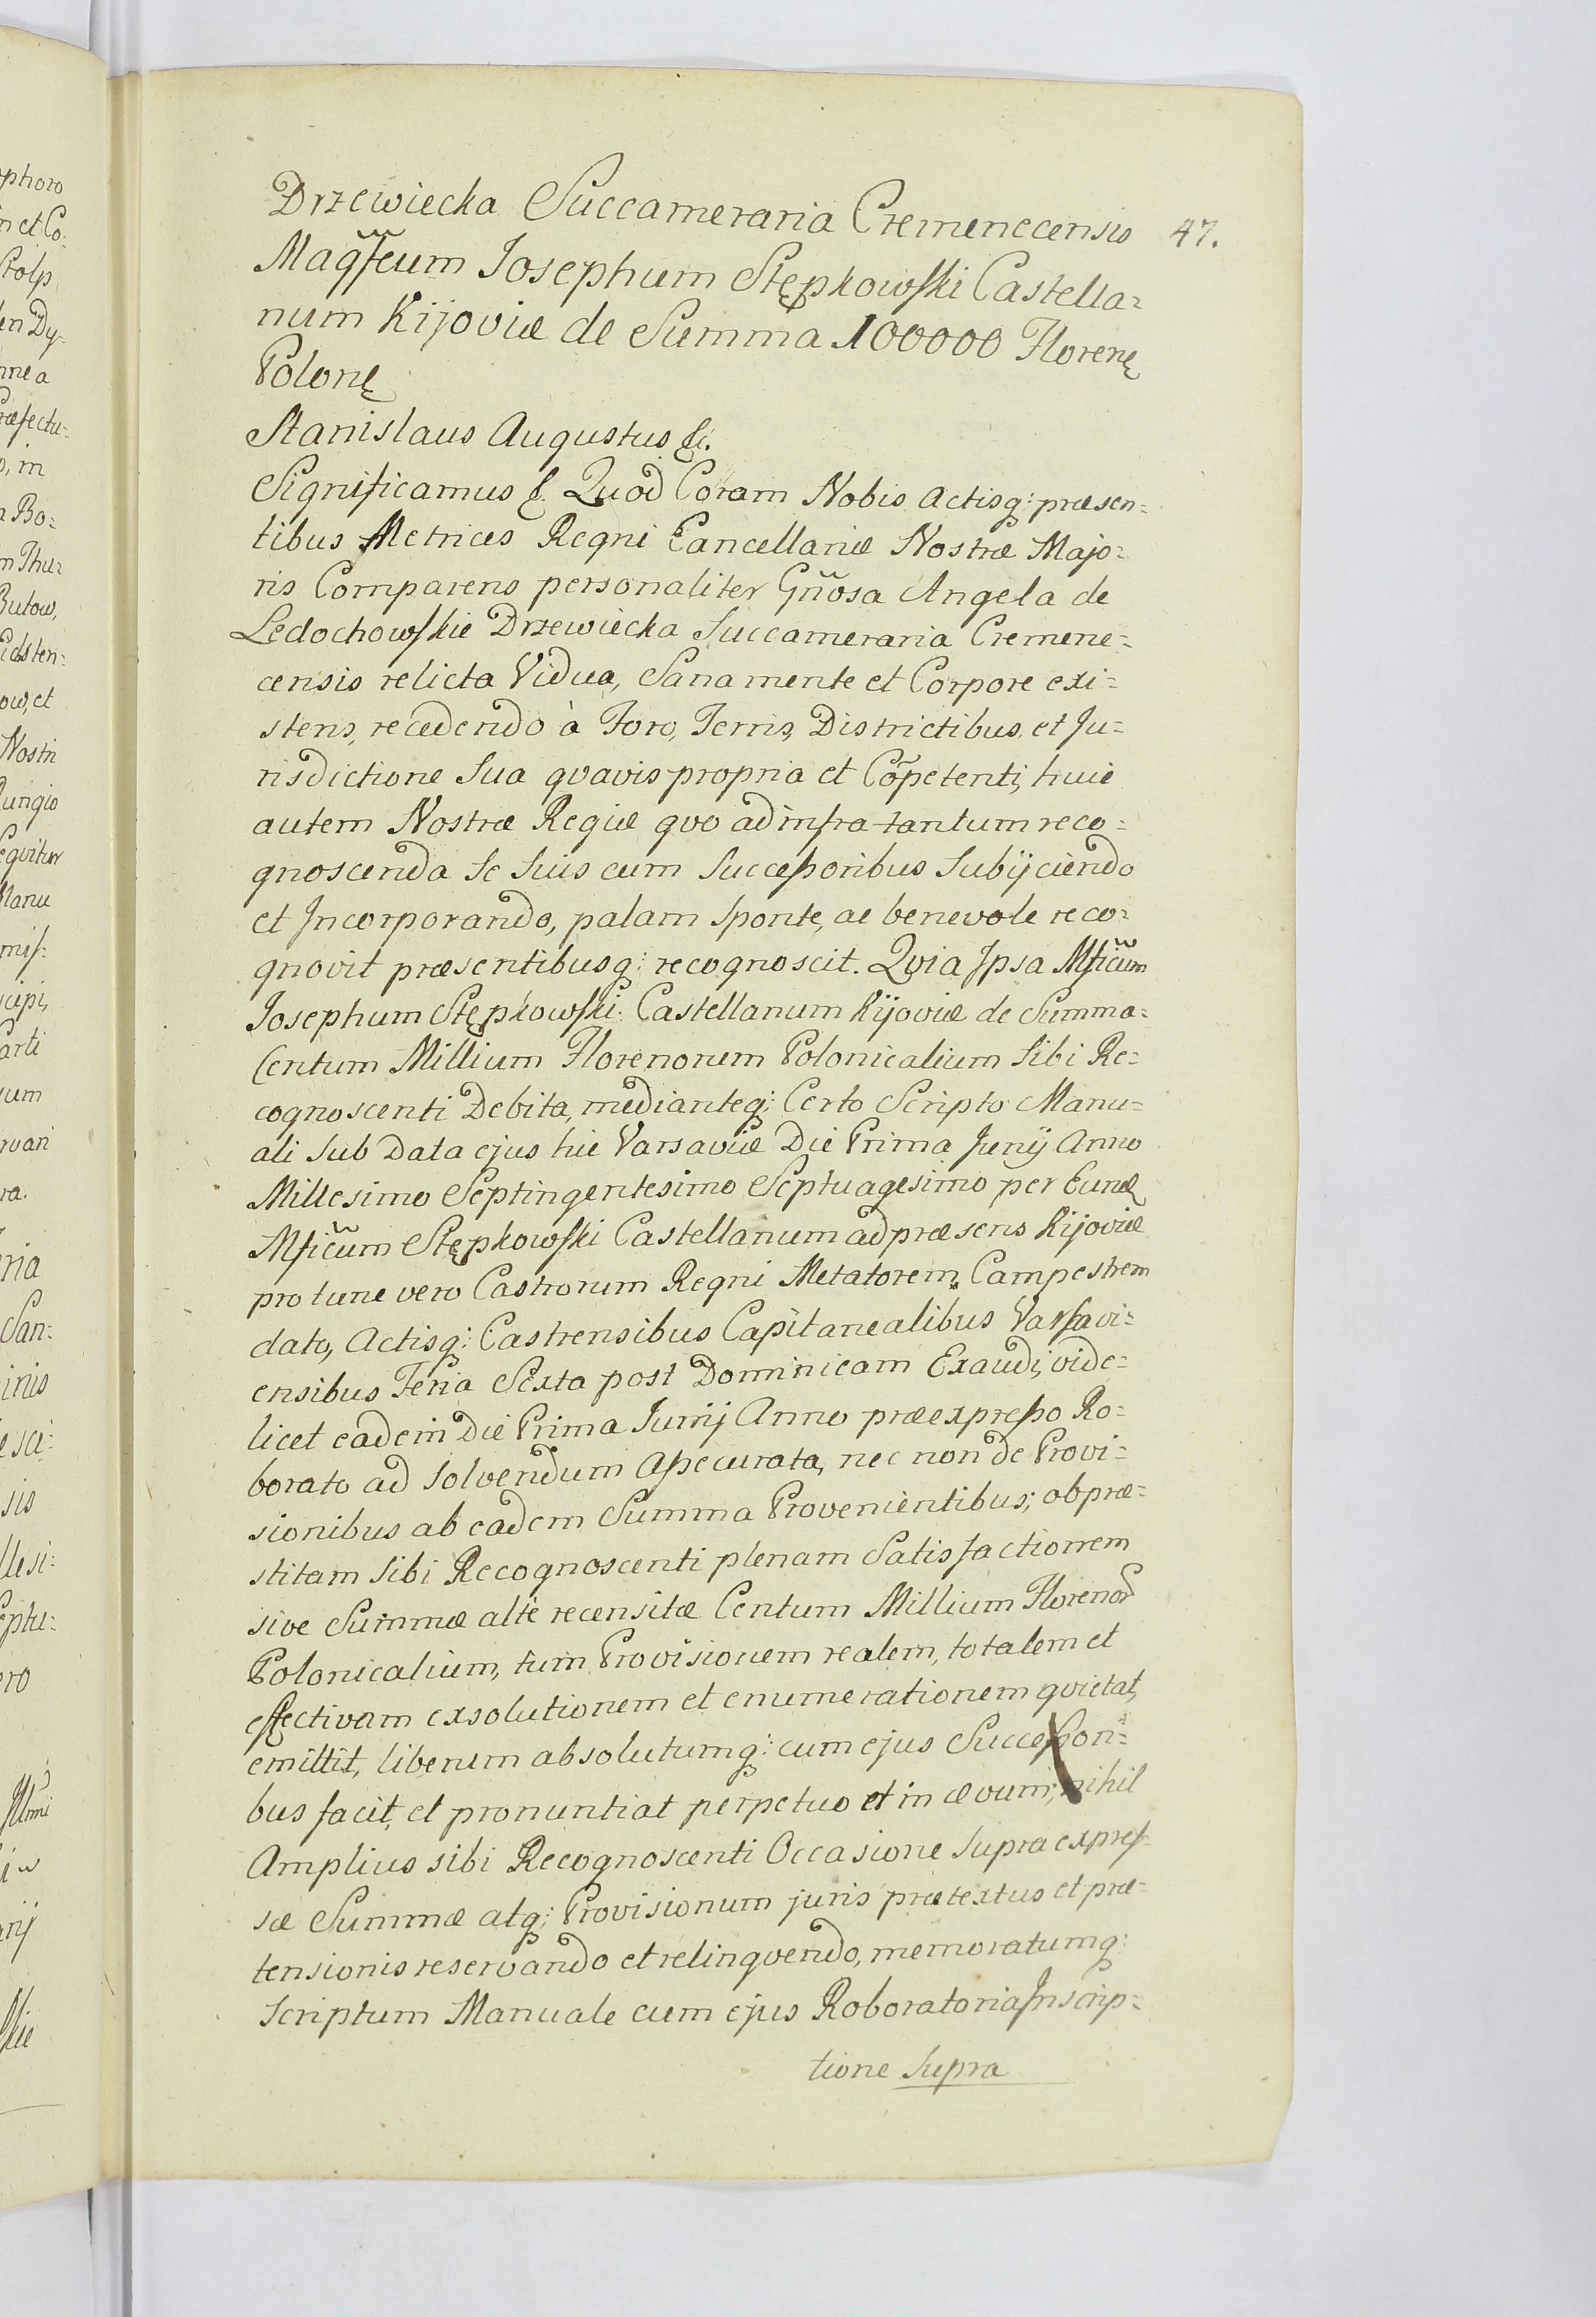 Drzewiecka Succameraria Cremenecensis 47.
Magfcum Josephum Stępkowski Castella=
num Kijoviæ de Summa 100000 Florenę
Polonę
Stanislaus Augustus &.
Significamus &. Quod Coram Nobis Actisq: præsen=
tibus Metrices Regni Cancellariæ Nostræ Majo=
ris Comparens personaliter Gñosa Angela de
Ledochowskie Drzewiecka Succameraria Cremene=
censis relicta Vidua, Sana mente et Corpore exi=
stens, recedendo à Foro, Terris, Districtibus, et Ju=
risdictione Sua qvavis propria et Cõpetenti, huic
autem Nostræ Regiæ qvo ad infra tantum reco=
gnoscenda Se Suis cum Successoribus Subijciendo
et Incorporando, palam sponte, ac benevole reco=
gnovit præsentibusq: recognoscit. Qvia Ipsa Mficum
Josephum Stępkowski Castellanum Kijoviæ de Summa=
Centum Millium Florenorum Polonicalium Sibi Re=
cognoscenti Debita, medianteq: Certo Scripto Manu=
ali Sub Data ejus hic Varsaviæ Die Prima Junij Anno
Millesimo Septingentesimo Septuagesimo per Eundę
Mficum Stępkowski Castellanum ad præsens Kijoviæ
pro tunc vero Castrorum Regni Metatorem Campestrem
dato, Actisq: Castrensibus Capitanealibus Varsavi=
ensibus Feria Sexta post Dominicam Exaudi, vide=
licet eadem Die Prima Junij Anno præexpresso Ro=
borato ad Solvendum Assecurata, nec non de Provi=
sionibus ab eadem Summa Provenientibus; ob præ=
stitam Sibi Recognoscenti plenam Satisfactionem
sive Summæ altè recensitæ Centum Millium Florenor
Polonicalium, tum Provisionem realem, totalem et
effectivam exsolutionem et enumerationem qvietat,
emittit, liberum absolutumq: cum ejus Successori=
bus facit, et pronuntiat perpetuo et in ævum; nihil
Amplius sibi Recognoscenti Occasione Supra expres=
sæ Summæ atq; Provisionum juris prætextus et præ=
tensionis reservando et relinqvendo, memoratumq:
Scriptum Manuale cum ejus Roboratoria Inscrip=
tione Supra